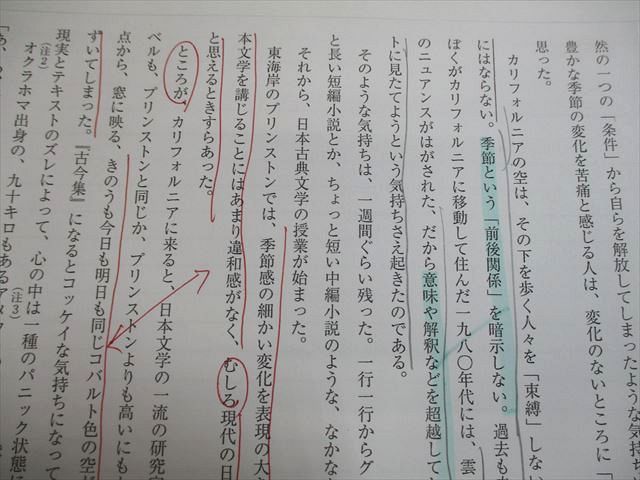 然の一つの「条件」から自らを解放してしまったような気持ち
豊かな季節の変化を苦痛と感じる人は、変化のないところに「
思った。
カリフォルニアの空は、その下を歩く人々を「束縛」しない
にはならない。季節という「前後関係」を暗示しない。過去も
ぼくがカリフォルニアに移動して住んだ一九八〇年代には、雲
のニュアンスがはがされた、だから意味や解釈などを超越して
トに見たてようという気持ちさえ起きたのである。
そのような気持ちは、一週間ぐらい残った。一行一行からグ
と長い短編小説とか、ちょっと短い中編小説のような、なかな
それから、日本古典文学の授業が始まった。
東海岸のプリンストンでは、季節感の細かい変化を表現の大
本文学を講じることにはあまり違和感がなく、むしろ現代の日
と思えるときすらあった。
ところが、カリフォルニアに来ると、日本文学の一流の研究
ベルも、プリンストンと同じか、プリンストンよりも高いにも
点から、窓に映る、きのうも今日も明日も同じコバルト色の空が
ずいてしまった。『古今集』になるとコッケイな気持ちになって
現実とテキストのズレによって、心の中は一種のパニック状態に
(注2)
オクラホマ出身の、九十キロもあるアメ
(注3)